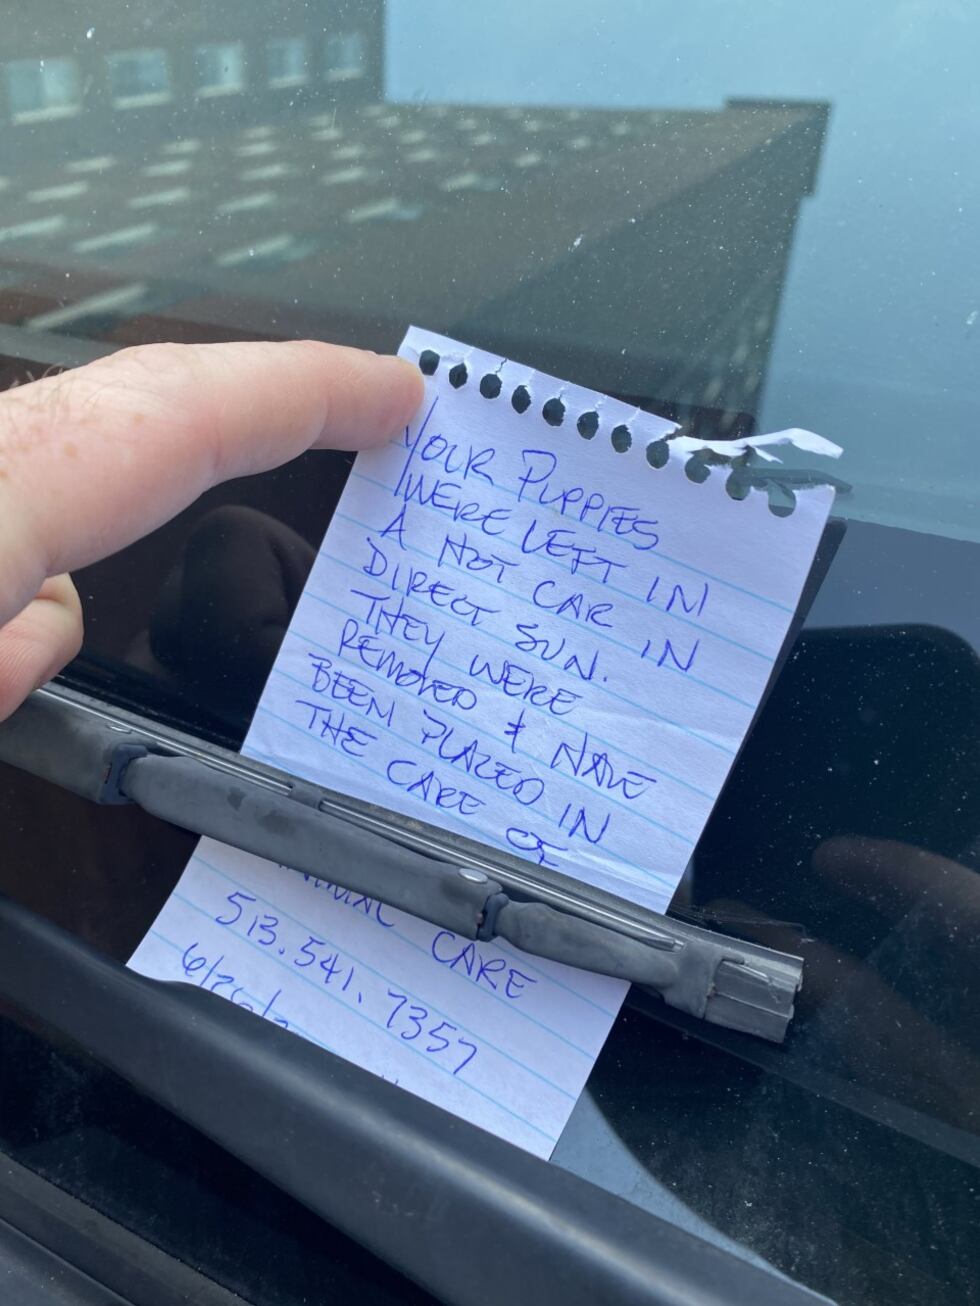 YOUR PUPPIES
WERE LEFT IN
A HOT CAR IN
DIRECT SUN.
THEY WERE
REMOVED & HAVE
BEEN PLACED IN
THE CARE OF
CARE
513.541.7357